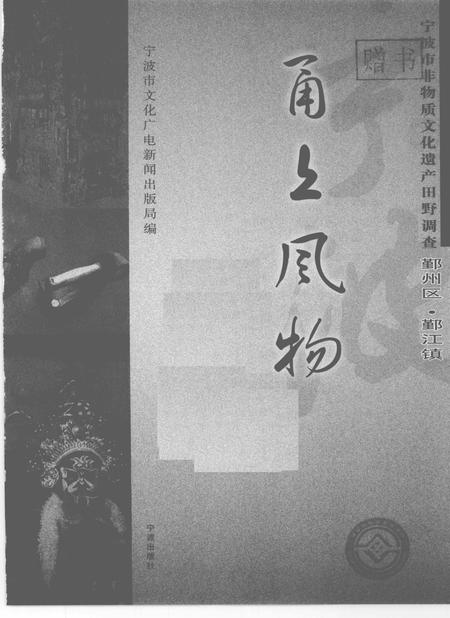 赠书
宁波市非物质文化遗产田野调查
鄞州区·鄞江镇
甬上风物
宁波市文化广电新闻出版局编
宁波出版社